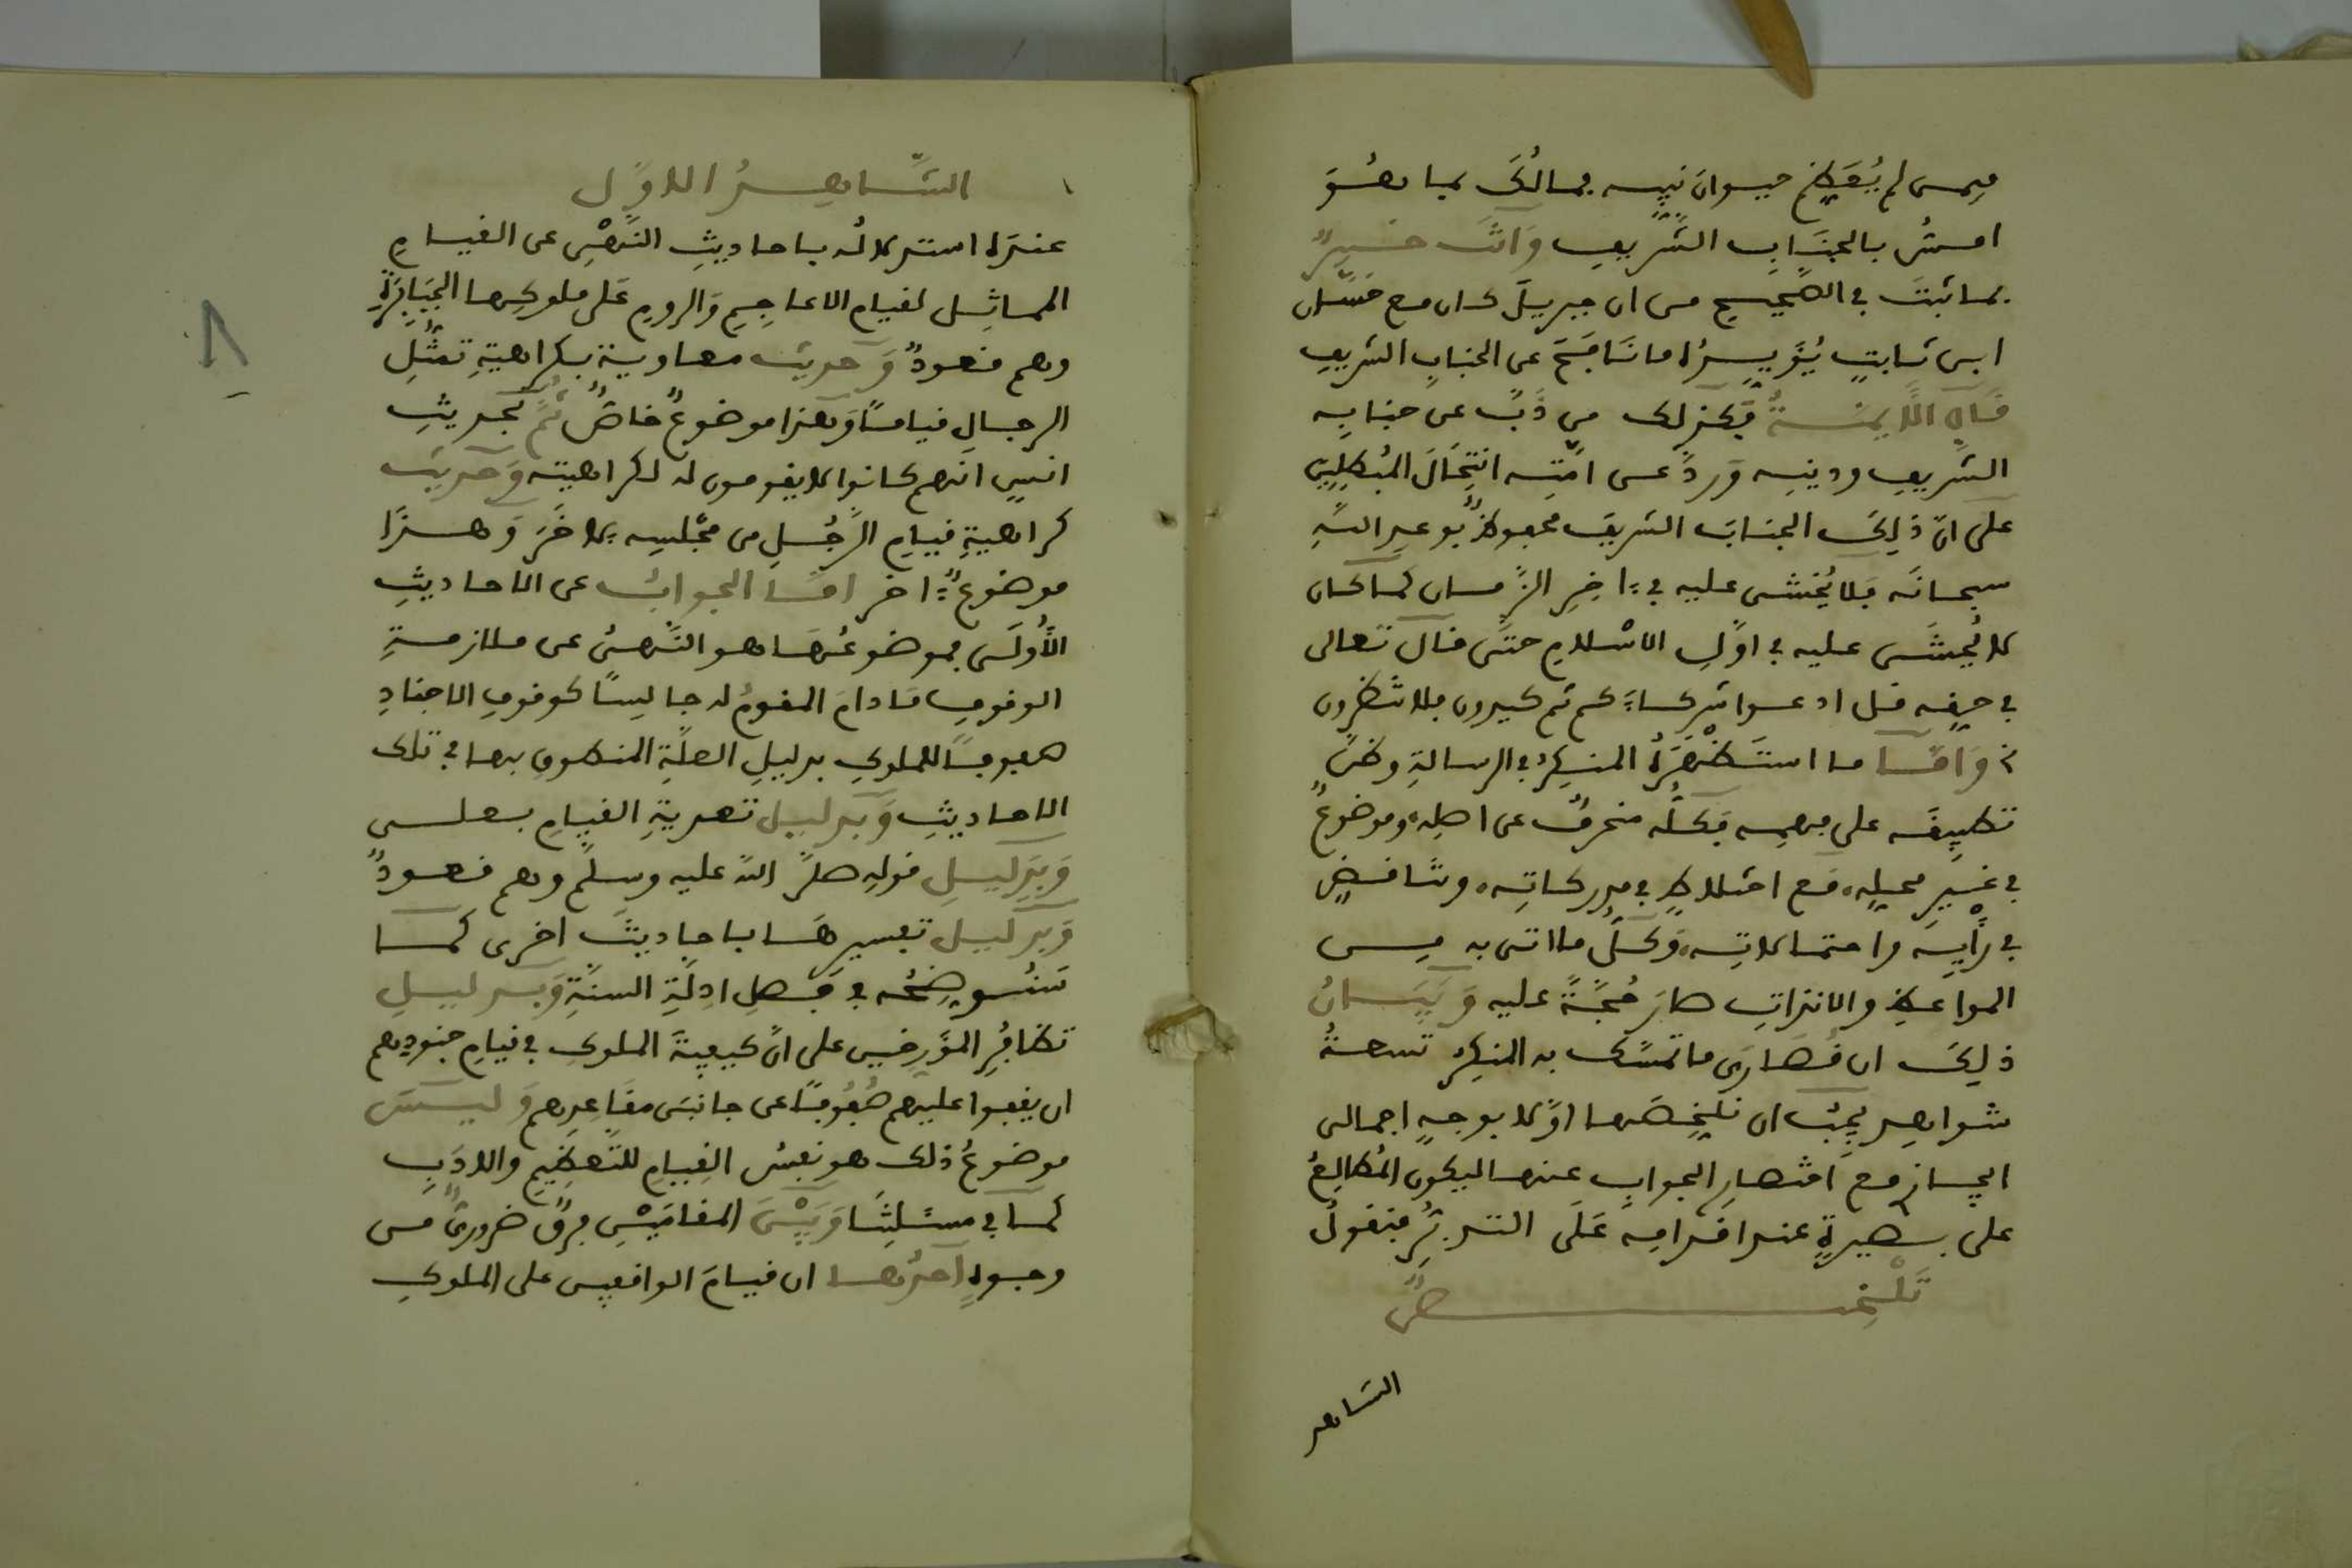 فيمن لم يُعظم حيوان نبيه فمالك بما هو
امس بالجناب الشريف وانت خبير
بما ثبت في الصحيح من ان جبريل كان مع حسّان
ابن ثابت يُؤيده ما نافح عن الجناب الشريف
قال الايمة فكذلك من ذبّ عن جنابه
الشريف ودينه وردّ عن امته انتحال المبطلين
على انّ ذلك الجناب الشريف محفوظ بوعد الله
سبحانه فلا يُخشى عليه في ءاخر الزمان كما كان
لا يُخشى عليه في اوّل الاسلام حتى قال تعالى
في حقه قل ادعوا شركاءكم ثم كيدون فلا تنظرون
واما ما استظهره المنكر في الرسالة وظن
تطبيقه على فهمه فكله منحرف عن اصله وموضوع
في غير محله مع اختلاط في مدركاته وتناقض
في رأيه واحتمالاته وكل ما اتى به من
المواعظ والانذرات صار حُجّة عليه وبيان
ذلك ان قُصارى ما تمسّك به المنكر تسعة
شواهد يجب ان نلخصها اولا بوجه اجمالى
ايجاز مع اقتصار الجواب عنها ليكون المُطالع
على بصيرة عند اقدامه على التدبّر فنقول
تلخيص
الشاهد
الشّاهد الاوّل
عنده استدلاله باحاديث النّهي عن القيام
المماثل لقيام الاعاجم والروم على ملوكها الجبابرة
وهم قعود وحديث معاوية بكراهية تمثّل
الرجال قياما وهذا موضوع خاص ثم بحديث
انس انهم كانوا لا يقومون له لكراهيته وحديث
كراهية قيام الرّجل من مجلسه لاخر وهذا
موضوع ءاخر امّا الجواب عن الاحاديث
الأولى فموضوعها هو النّهي عن ملازمة
الوقوف ما دام المقوم له جالسا كوقوف الاجناد
صفوفا للملوك بدليل العلّة المنطوق بها في تلك
الاحاديث وبدليل تعدية القيام بعلى
وبدليل قوله صلى الله عليه وسلم وهم قعود
وبدليل تفسيرها باحاديث اخرى كما
سنوضحه في فصل ادلّة السنة وبدليل
تظافر المؤرخين على انّ كيفية الملوك في قيام جنودهم
ان يقفوا عليهم صُفوفا عن جانبي مقاعدهم وليس
موضوع ذلك هو نفس القيام للتعظيم والادب
كما في مسئلتنا وبين المقامين فرق ضروري من
وجوه احدها ان قيام الواقفين على الملوك